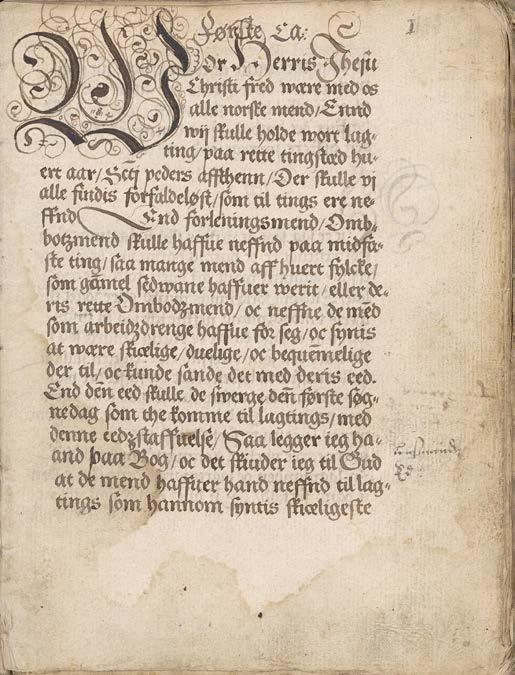 1
Første Ca:
Vor Herris Jhesu
Christi fred være med os
alle norske mend/ Ennd
wij skulle holde wort lag=
ting/ paa rette tingstæd hu=
ert aar/ Sctj peders affthenn/ Der skulle vj
alle findis forfaldeløst/ som til tings ere ne=
ffnd End forleningsmend/ Omb=
botzmend skulle haffue neffnd paa midfa=
ste ting/ saa mange mend aff huert fylcke/
som gamel sedwane haffuer werit/ eller de=
ris rette Ombodzmend/ oc neffne de mēd
som arbeidzdrenge haffue for seg/ oc synis
at wære skiælige/ duelige/ oc bequēmelige
der til/ oc kunde sande det med deris eed.
End dēn eed skulle de swerge dēn første søg=
nedag som the komme til lagtings/ med
denne eedzstaffuelse/ Saa legger ieg ha=
and paa Bog/ oc det skiuder ieg til Gud
at de mend haffuer hand neffnd til lag=
tings som hannom syntis skiæligeste